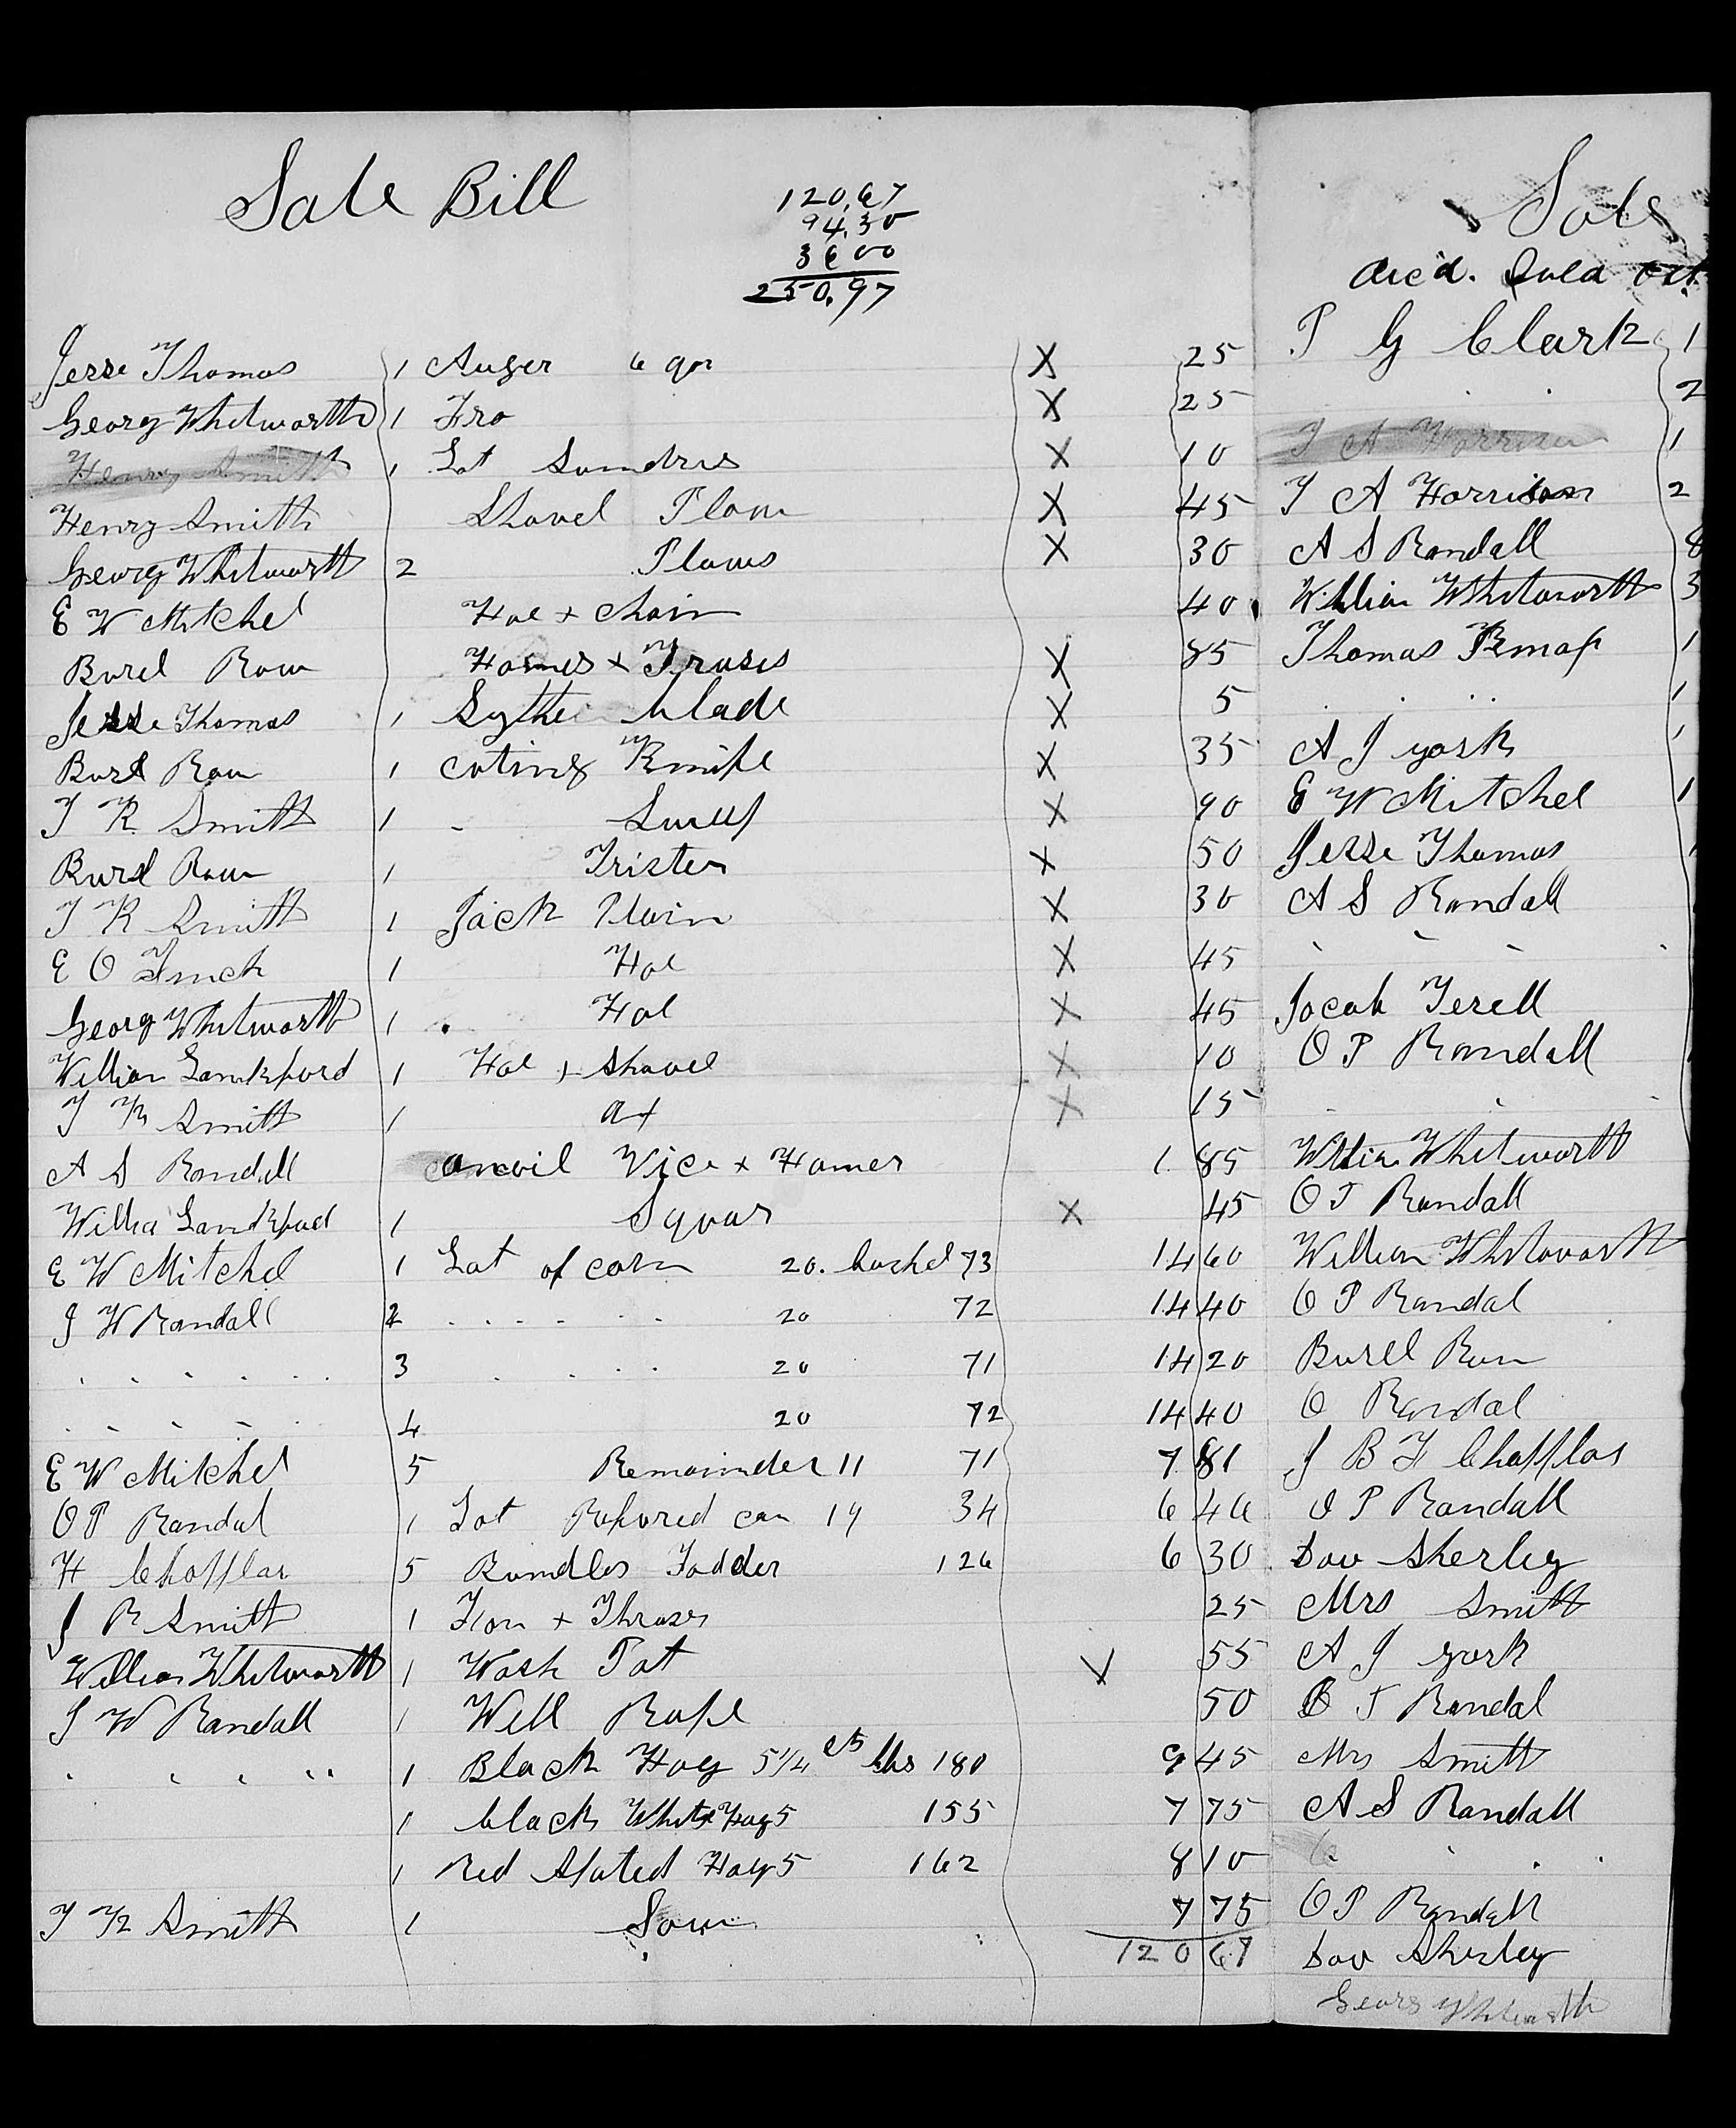 Sale Bill
120.67
94.30
36 00
250.97
Jesse Thomas 1 Auger 6 qr X 25
Georg Whitworth 1 Fro X 25
Henry Smith 1 Lot Sundrus X 10
Henry Smith Shovel Plow X 45
Georg Whitworth 2 Plows X 30
E W Mitchel Hoe + chain 40
Burel Row Hames + Trases X 85
Jesse Thomas 1 Sythe blade X 5
Burl Row 1 cuting Knife X 35
T R Smith 1 - X 90
Burel Row 1 X 50
T K Smith 1 Jack Plain X 30
E O Finch 1 Hoe X 45
Georg Whitworth 1 Hoe X 45
William Lankford 1 Hoe + Shovel X 10
T K Smith 1 ax X 15
A S Randall anvil Vice + Hamer 1 85
Willia Lankford 1 Squar X 45
E W Mitchel 1 Lot of corn 20. bushel 73 14 60
J W Randall 2 . . . . . . 20 72 14 40
. . . . . . 3 . . . . 20 71 14 20
. . . . . 4 20 72 14 40
E W Mitchel 5 Remainder 11 71 7 81
O P Randal 1 Lot 19 34 6 46
H Chafflar 5 Bundles Fodder 126 6 30
J R Smith 1 + Thrases 25
William Whitworth 1 Wash Pot V 55
J W Randall 1 Well Rope 50
. . . . . 1 Black Hog 5 1/4 cts lbs 180 9 45
1 black White Hog 5 155 7 75
1 Red Spoted Hog 5 162 8 10
T K Smith 1 Sow 7 75
120 67
Sale
dec'd. Sold Oct.
P G Clark 1
. . 2
T A Harrison 1
T A Harrison 2
A S Randall 8
William Whitworth 3
Thomas 1
. . . 1
A J york 1
E W Mitchel 1
Jesse Thomas
A S Randall
- - - -
Jacob Terell
O P Randall
. . .
William Whitworth
O P Randall
William Whitworth
O P Randal
Burell Row
O Randal
J B F Chafflas
O P Randall
Dav Sherley
Mrs Smith
A J york
O P Randal
Mrs Smith
A S Randall
. . .
O P Randall
Dav Sherley
Georg Whitworth